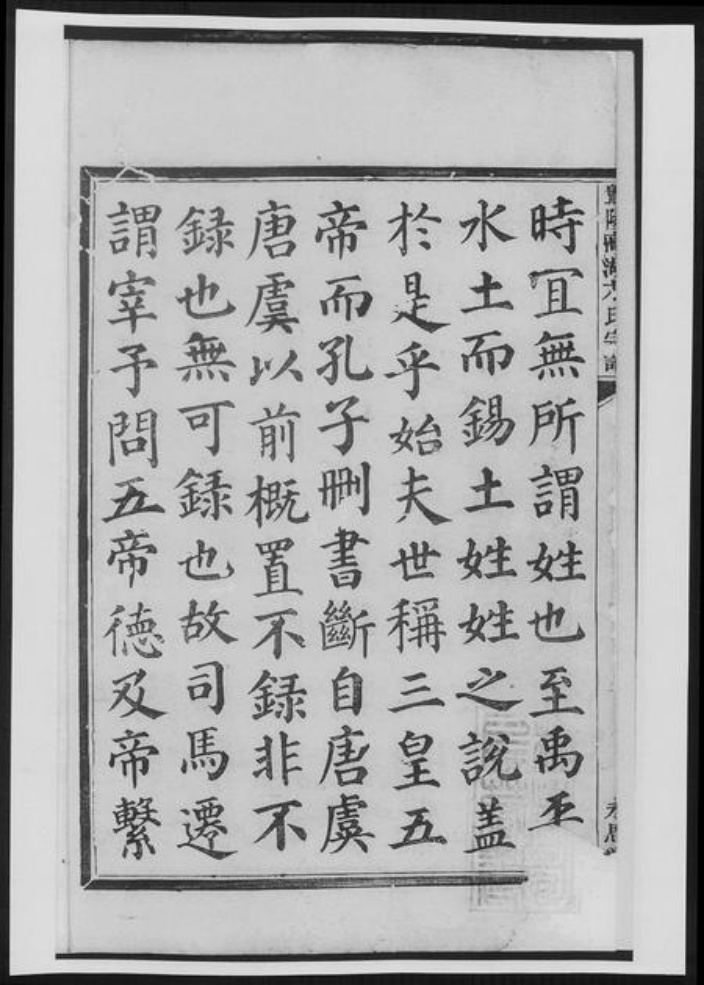 時宜無所謂姓也至禹平
水土而錫土姓姓之說盖
於是乎始夫世稱三皇五
帝而孔子刪書斷自唐虞
唐虞以前概置不録非不
録也無可録也故司馬遷
謂宰予問五帝德及帝繫